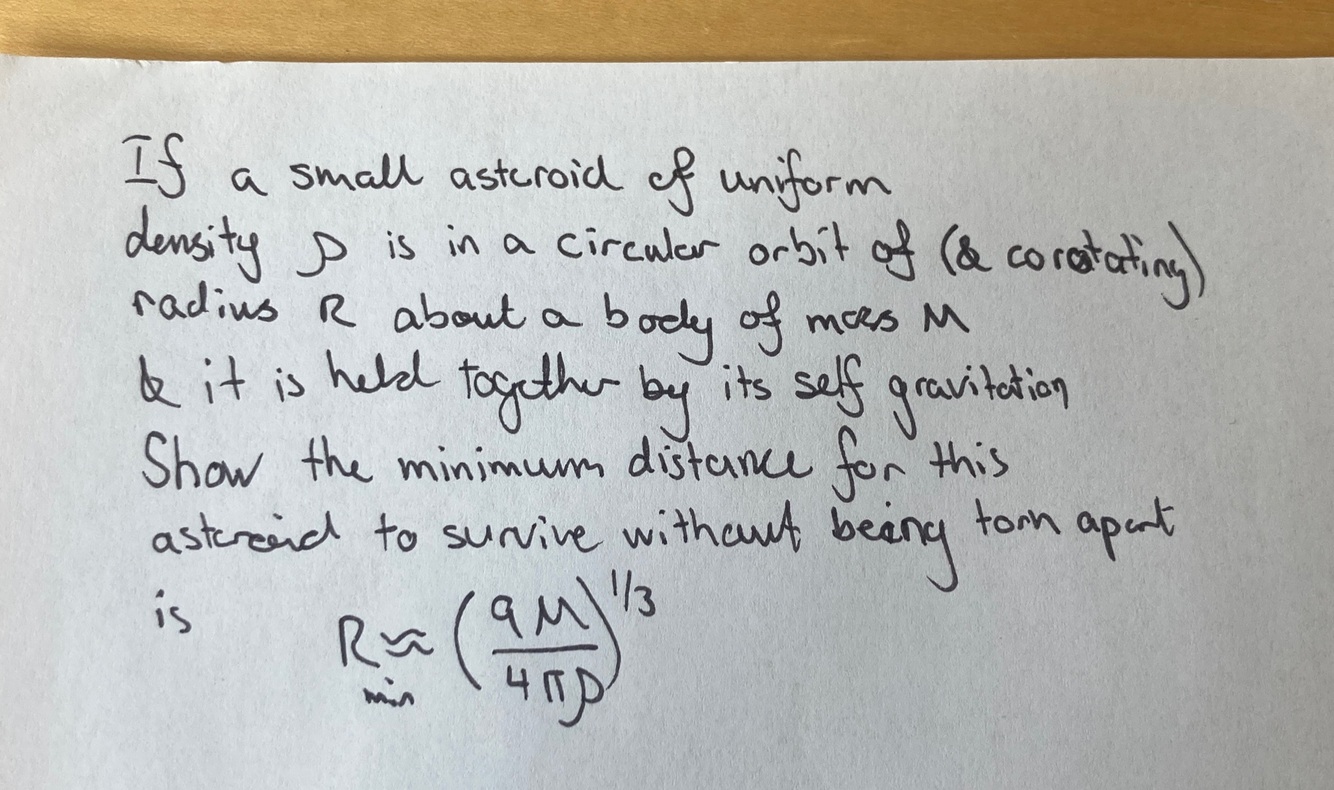 If a small asteroid of uniform
density ρ is in a circular orbit of (& corotating)
radius R about a body of mass M
& it is held together by its self gravitation
Show the minimum distance for this
asteroid to survive without being torn apart
is R_min ≈ (9M/4πρ)^1/3